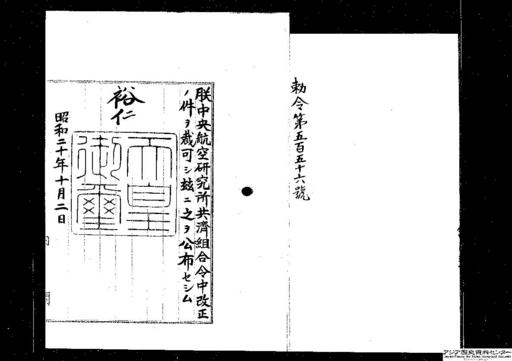 勅令第五百五十六號
朕中央航空研究所共濟組合令中改正
ノ件ヲ裁可シ玆ニ之ヲ公布セシム
裕仁
天皇御璽
昭和二十年十月二日
アジア歴史資料センター